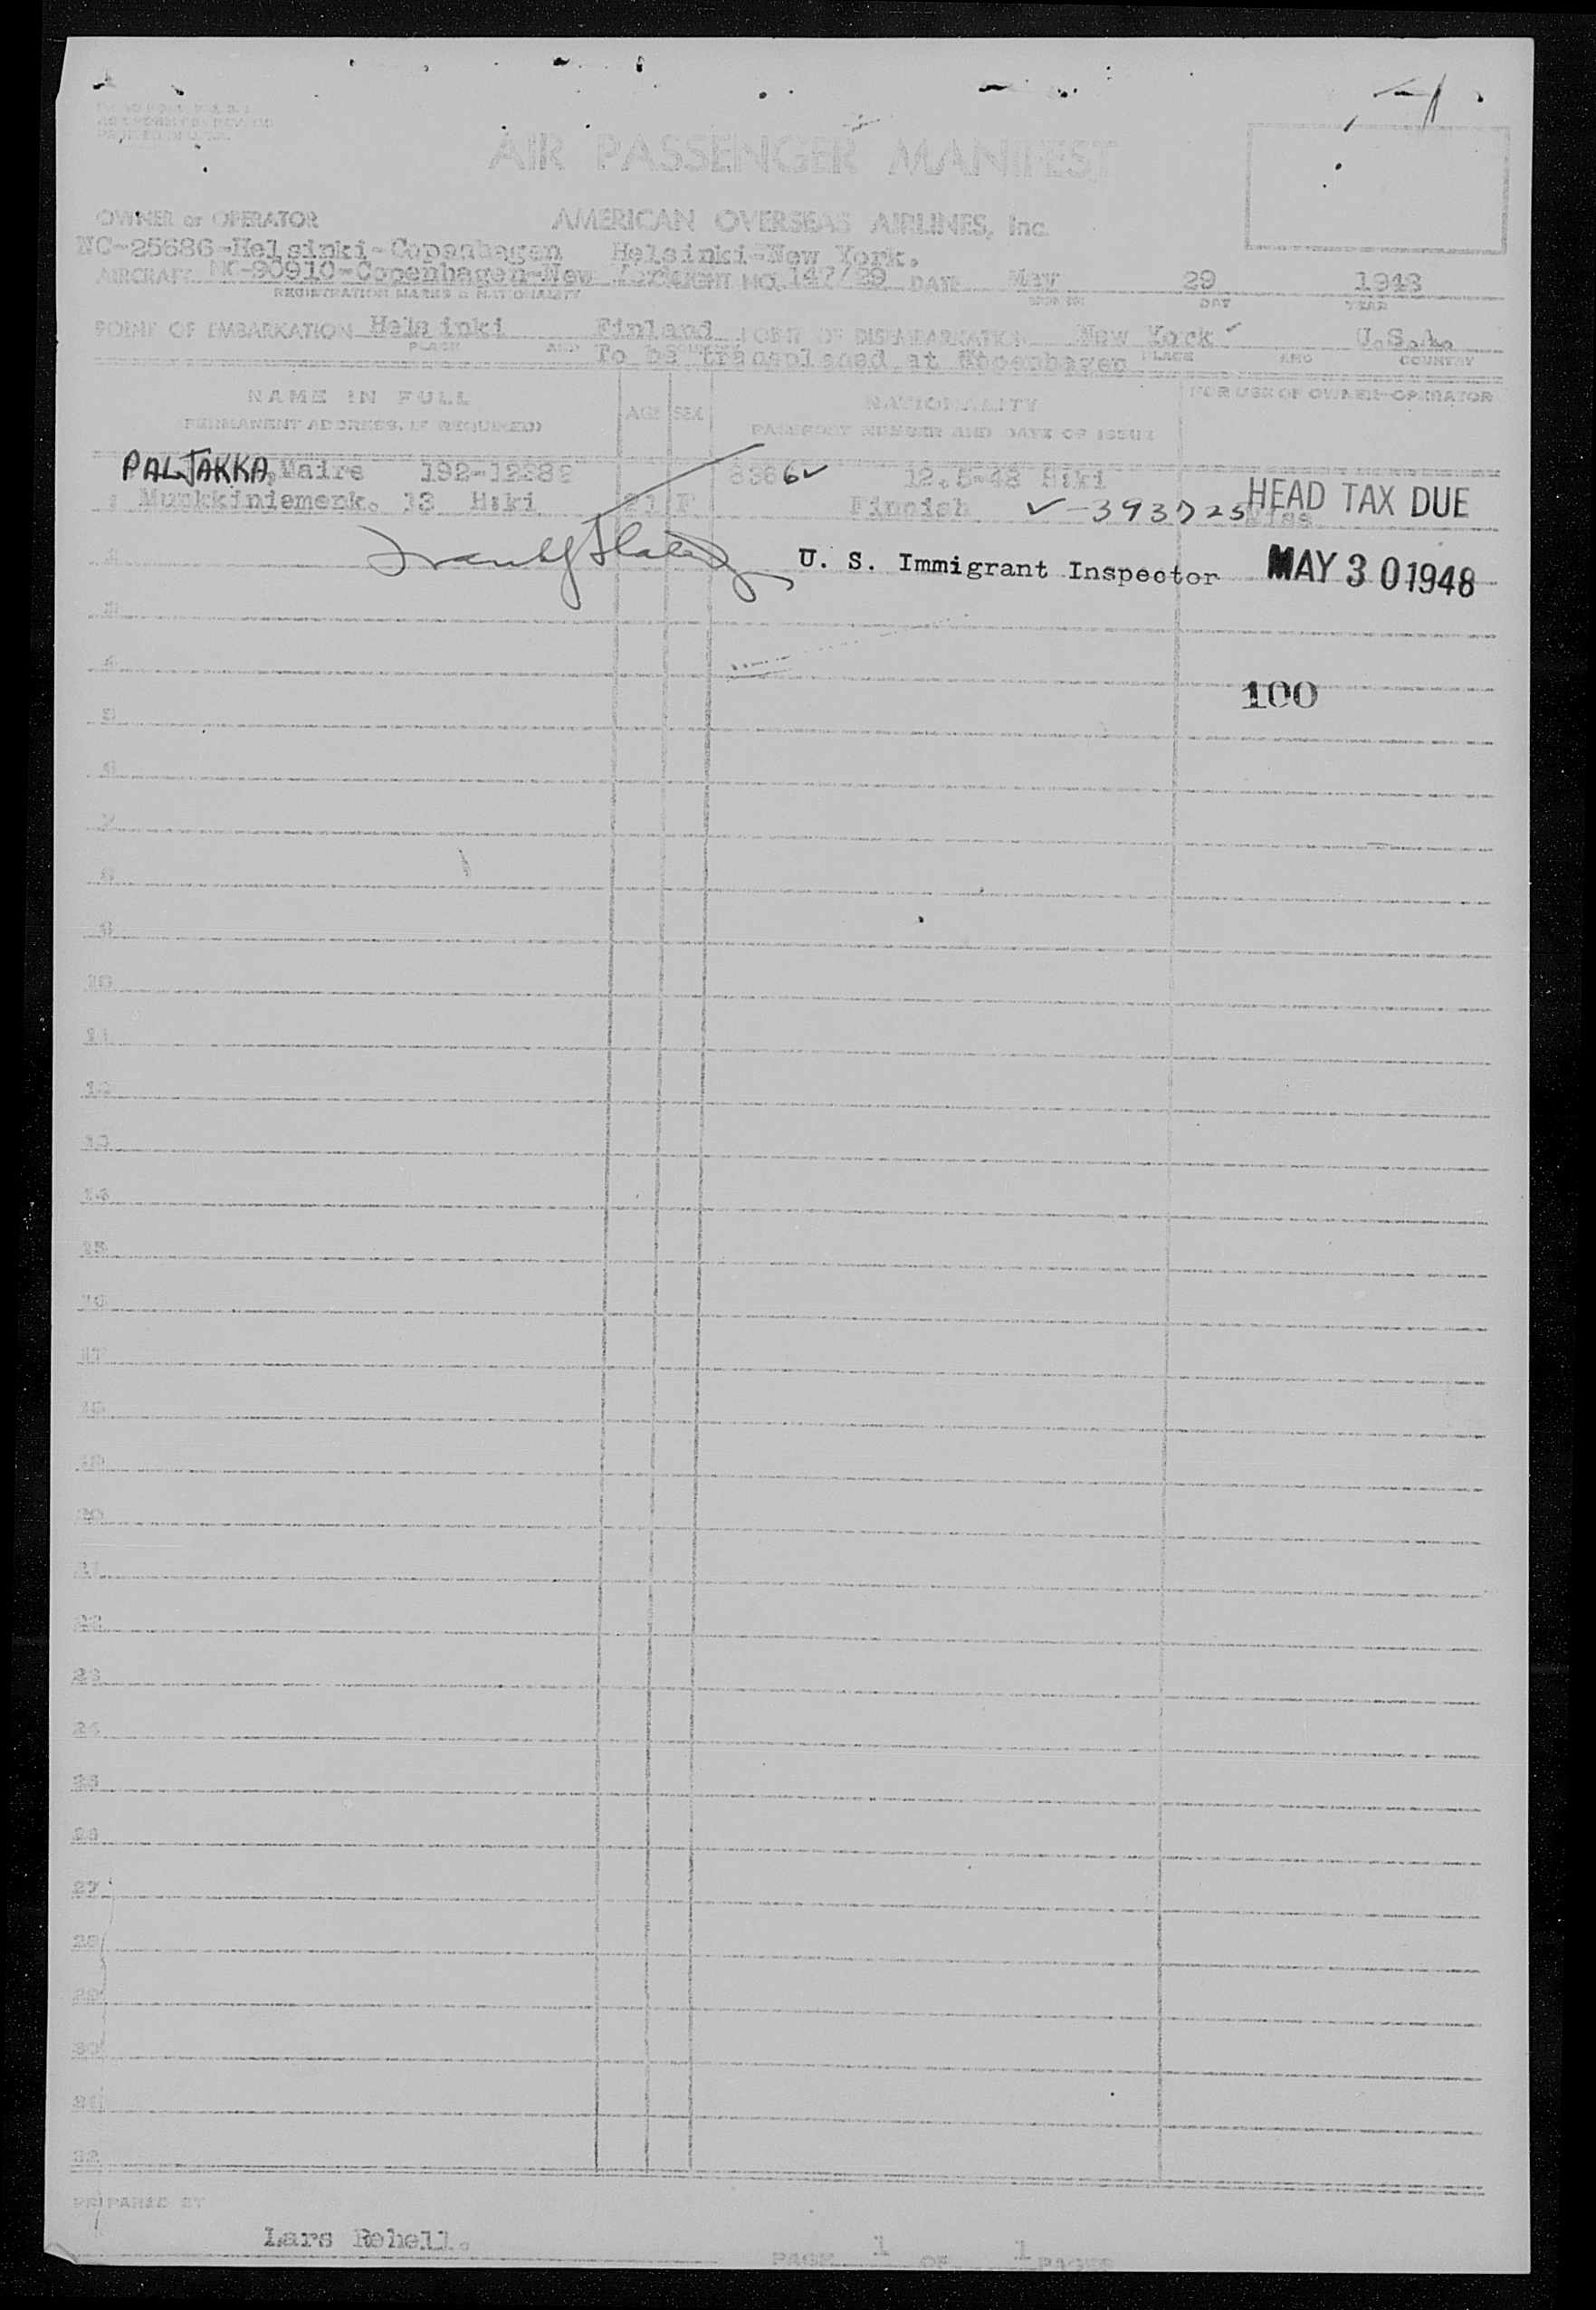 AIR PASSENGER MANIFEST
OWNER or OPERATOR AMERICAN OVERSEAS AIRLINES, Inc.
NC-25686-Helsinki-Copenhagen Helsinki-New York.
AIRCRAFT NC-90910-Copenhagen-New York FLIGHT NO. 147/29 DATE May 29 1948
REGISTRATION MARKS & NATIONALITY MONTH DAY YEAR
POINT OF EMBARKATION Helsinki Finland POINT OF DISEMBARKATION New York ✓ U.S.A.
PLACE AND COUNTRY PLACE AND COUNTRY
To be transplaned at Copenhagen
NAME IN FULL AGE SEX NATIONALITY FOR USE OF OWNER-OPERATOR
PERMANENT ADDRESS, IF REQUIRED) PASSPORT NUMBER AND DATE OF ISSUE
PALJAKKA, Maire 6 ✓ 12.5-48 H:ki
Munkkiniemenk. 13 H:ki 21 F Finnish ✓ - 393725 Miss
HEAD TAX DUE
U. S. Immigrant Inspector MAY 30 1948
3
4
100
5
6
7
8
9
10
11
12
13
14
15
16
17
18
19
20
21
22
23
24
25
26
27
28
29
30
31
32
PREPARED BY
Lars Rehell.
PAGE 1 OF 1 PAGES